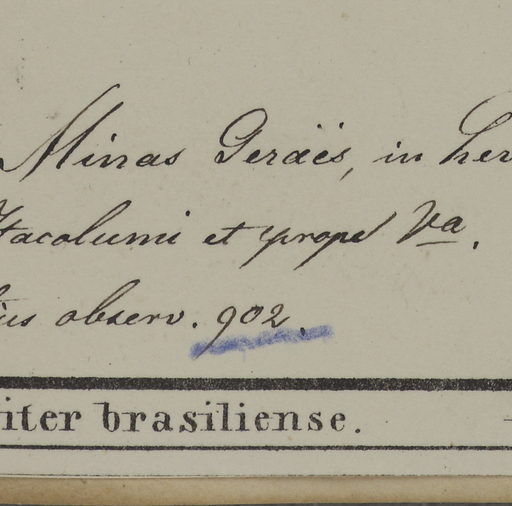 Minas Geraës, in her
Itacolumi et prope Va.
ius observ. 902.
iter brasiliense.